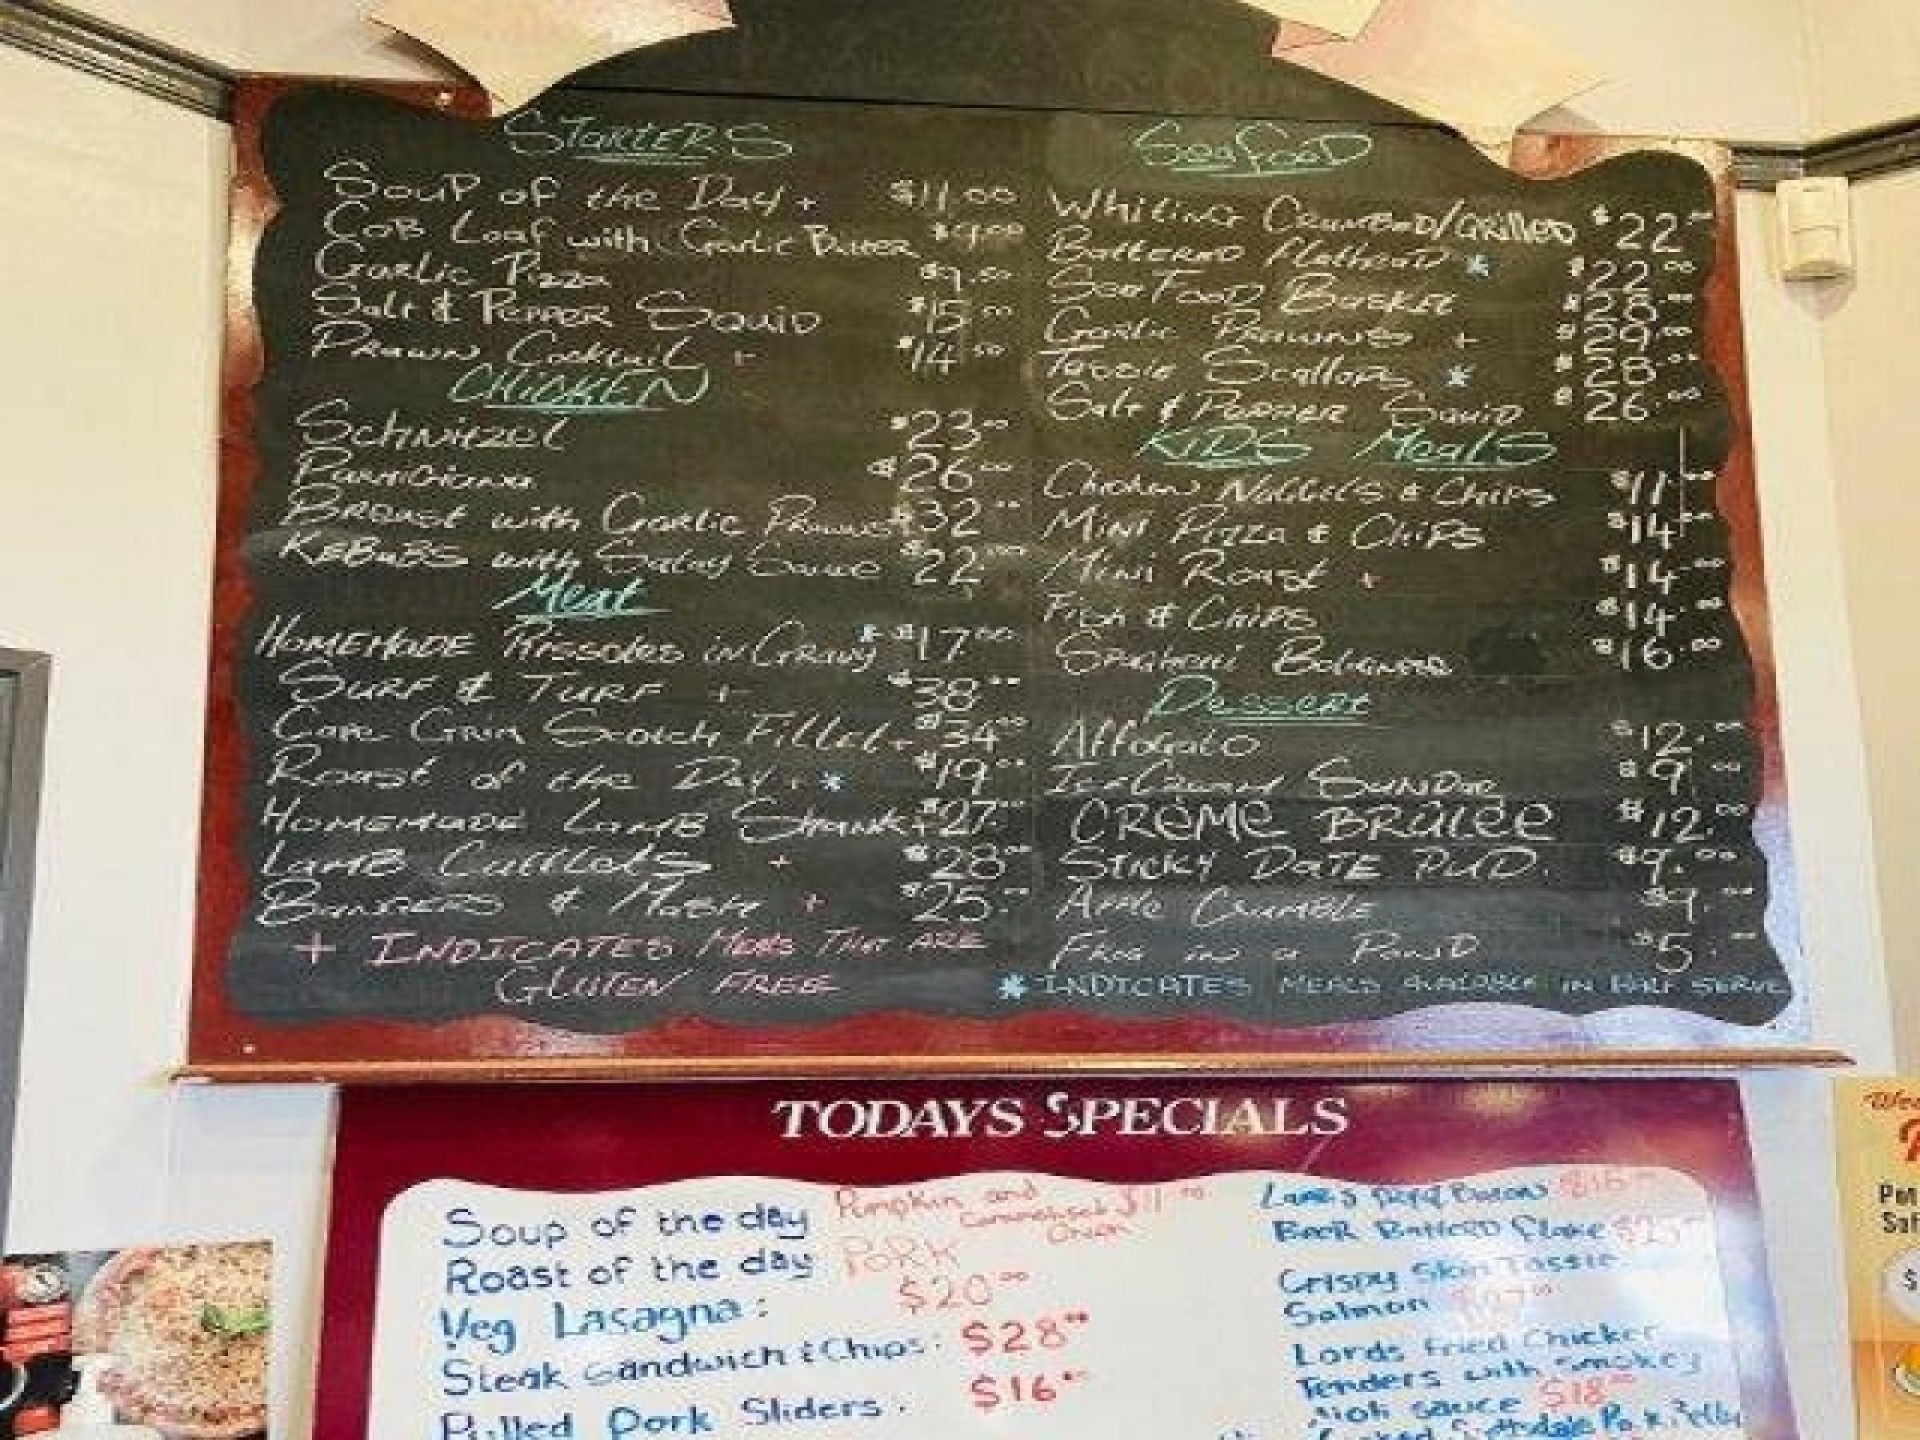 STARTERS
Soup of the Day + $11.00
Cob Loaf with Garlic Butter $9.00
Garlic Pizza $9.50
Salt & Pepper Squid $15.00
Prawn Cocktail + $14.50
CHICKEN
Schnitzel $23.00
Parmigiana $26.00
Breast with Garlic Prawns + $32.00
KEBABS with Satay Sauce $22.00
Meat
HOMEMADE Rissoles in Gravy * $17.00
SURF & TURF + $38.00
Cape Grim Scotch Fillet + $34.00
Roast of the Day + * $19.00
HOMEMADE LAMB Shank + $27.00
LAMB Cutlets + $28.00
BANGERS & Mash + $25.00
+ INDICATES Meals That ARE
GLUTEN FREE
Seafood
Whiting Crumbed/Grilled $22.00
Battered Flathead * $22.00
Seafood Basket $28.00
Garlic Prawns + $29.00
Tassie Scallops * $28.00
Salt & Pepper Squid $26.00
KIDS Meals
Chicken Nuggets & Chips $11.00
Mini Pizza & Chips $14.00
Mini Roast + $14.00
Fish & Chips $14.00
Spaghetti Bolognese $16.00
Dessert
Affogato $12.00
Ice Cream Sundae $9.00
CRèME BRûLée $12.00
STICKY DATE PUD. $9.00
Apple CRUMBLE $9.00
Frog in a Pond $5.
* INDICATES MEALS AVAILABLE IN HALF SERVE
TODAYS SPECIALS
Soup of the day Pumpkin and $11.00
Roast of the day PORK
Veg Lasagna: $20.00
Steak Sandwich & Chips: $28.00
Pulled Pork Sliders: $16
Lambs Fry & Bacon
Beer Battered Flake
Crispy Skin Tassie
Salmon
Lords fried Chicken
Tenders with smokey
Aioli sauce $18.00
Pork Belly